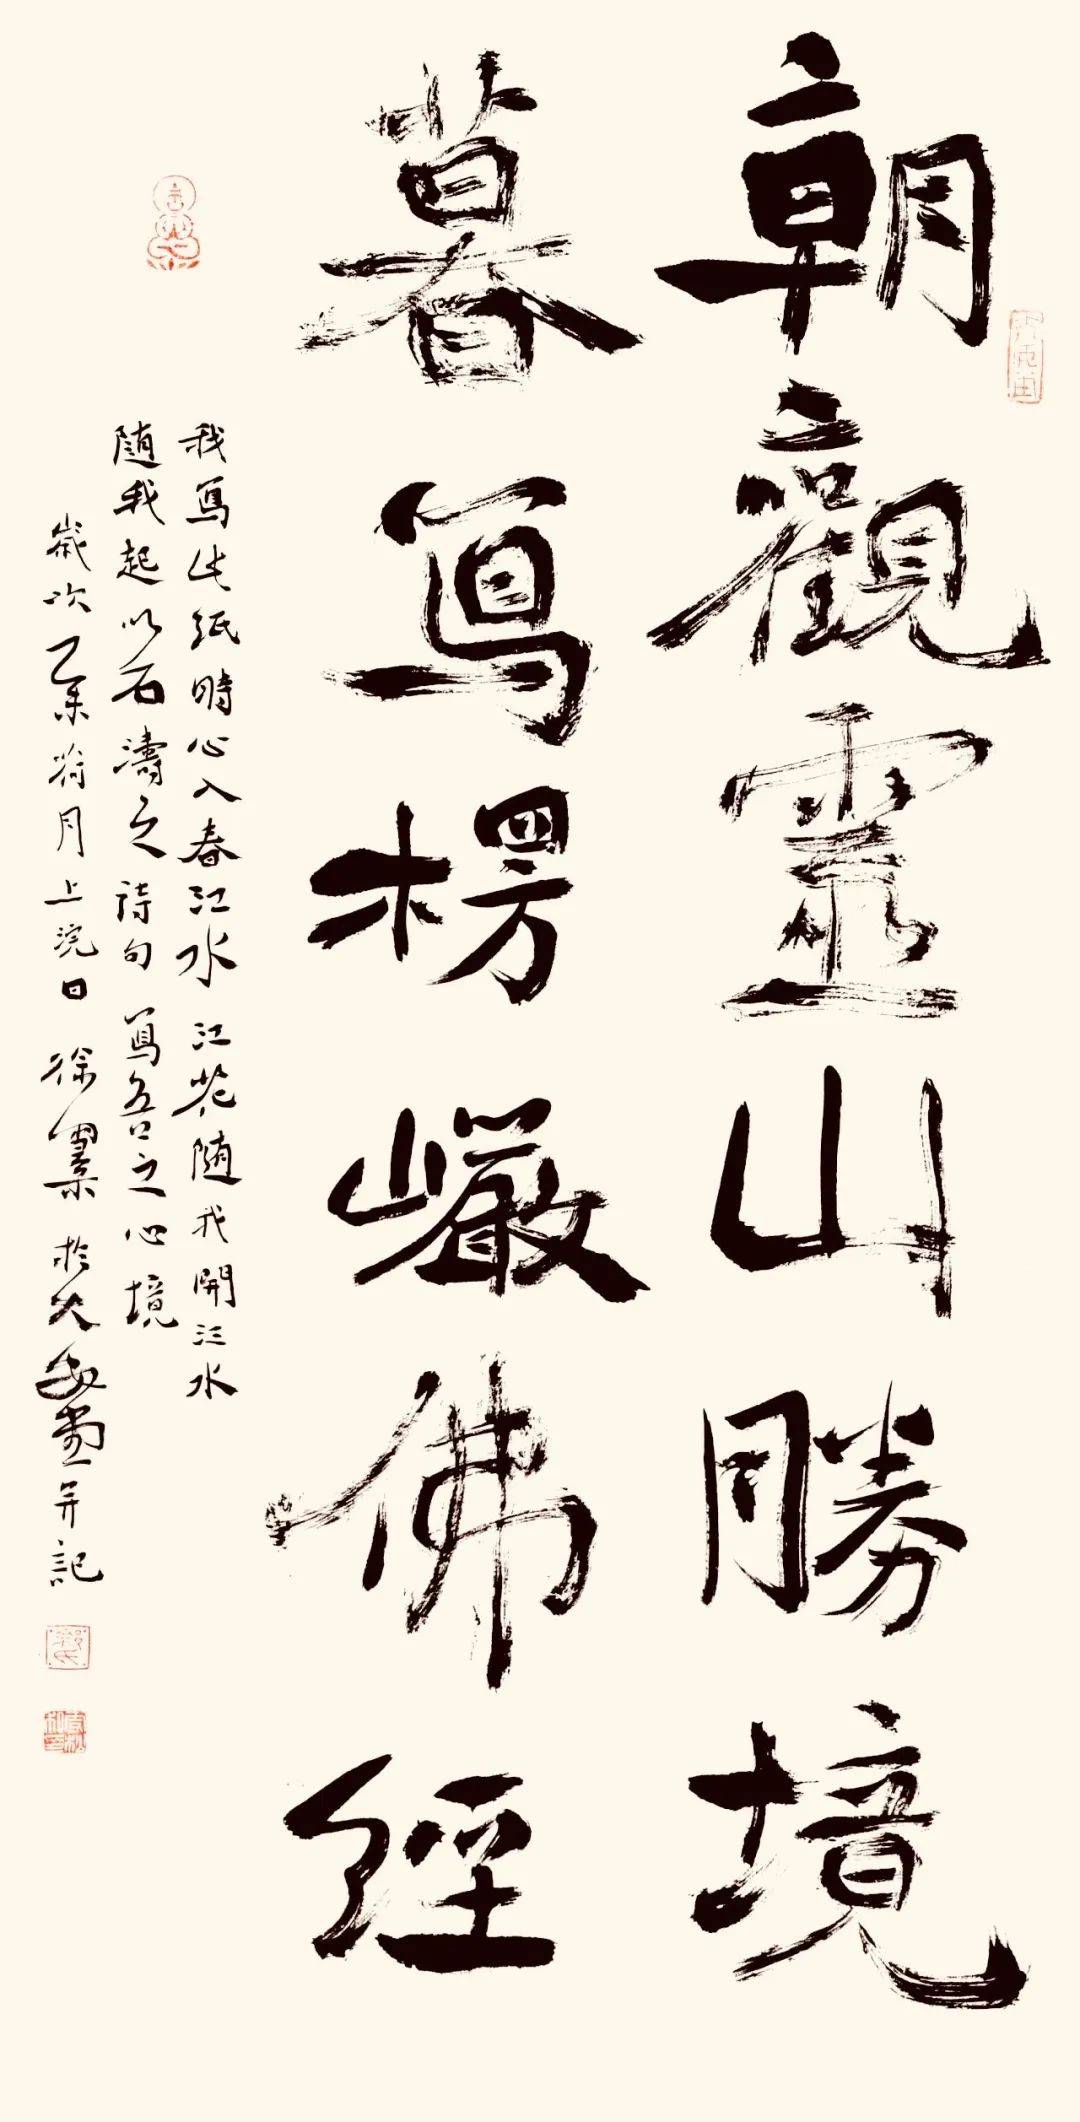 朝觀靈山勝境
暮寫楞嚴佛經
我寫此紙時心入春江水江花随我開江水
随我起以石濤之詩句寫吾之心境
歲次乙未荷月上浣日徐累於大并記